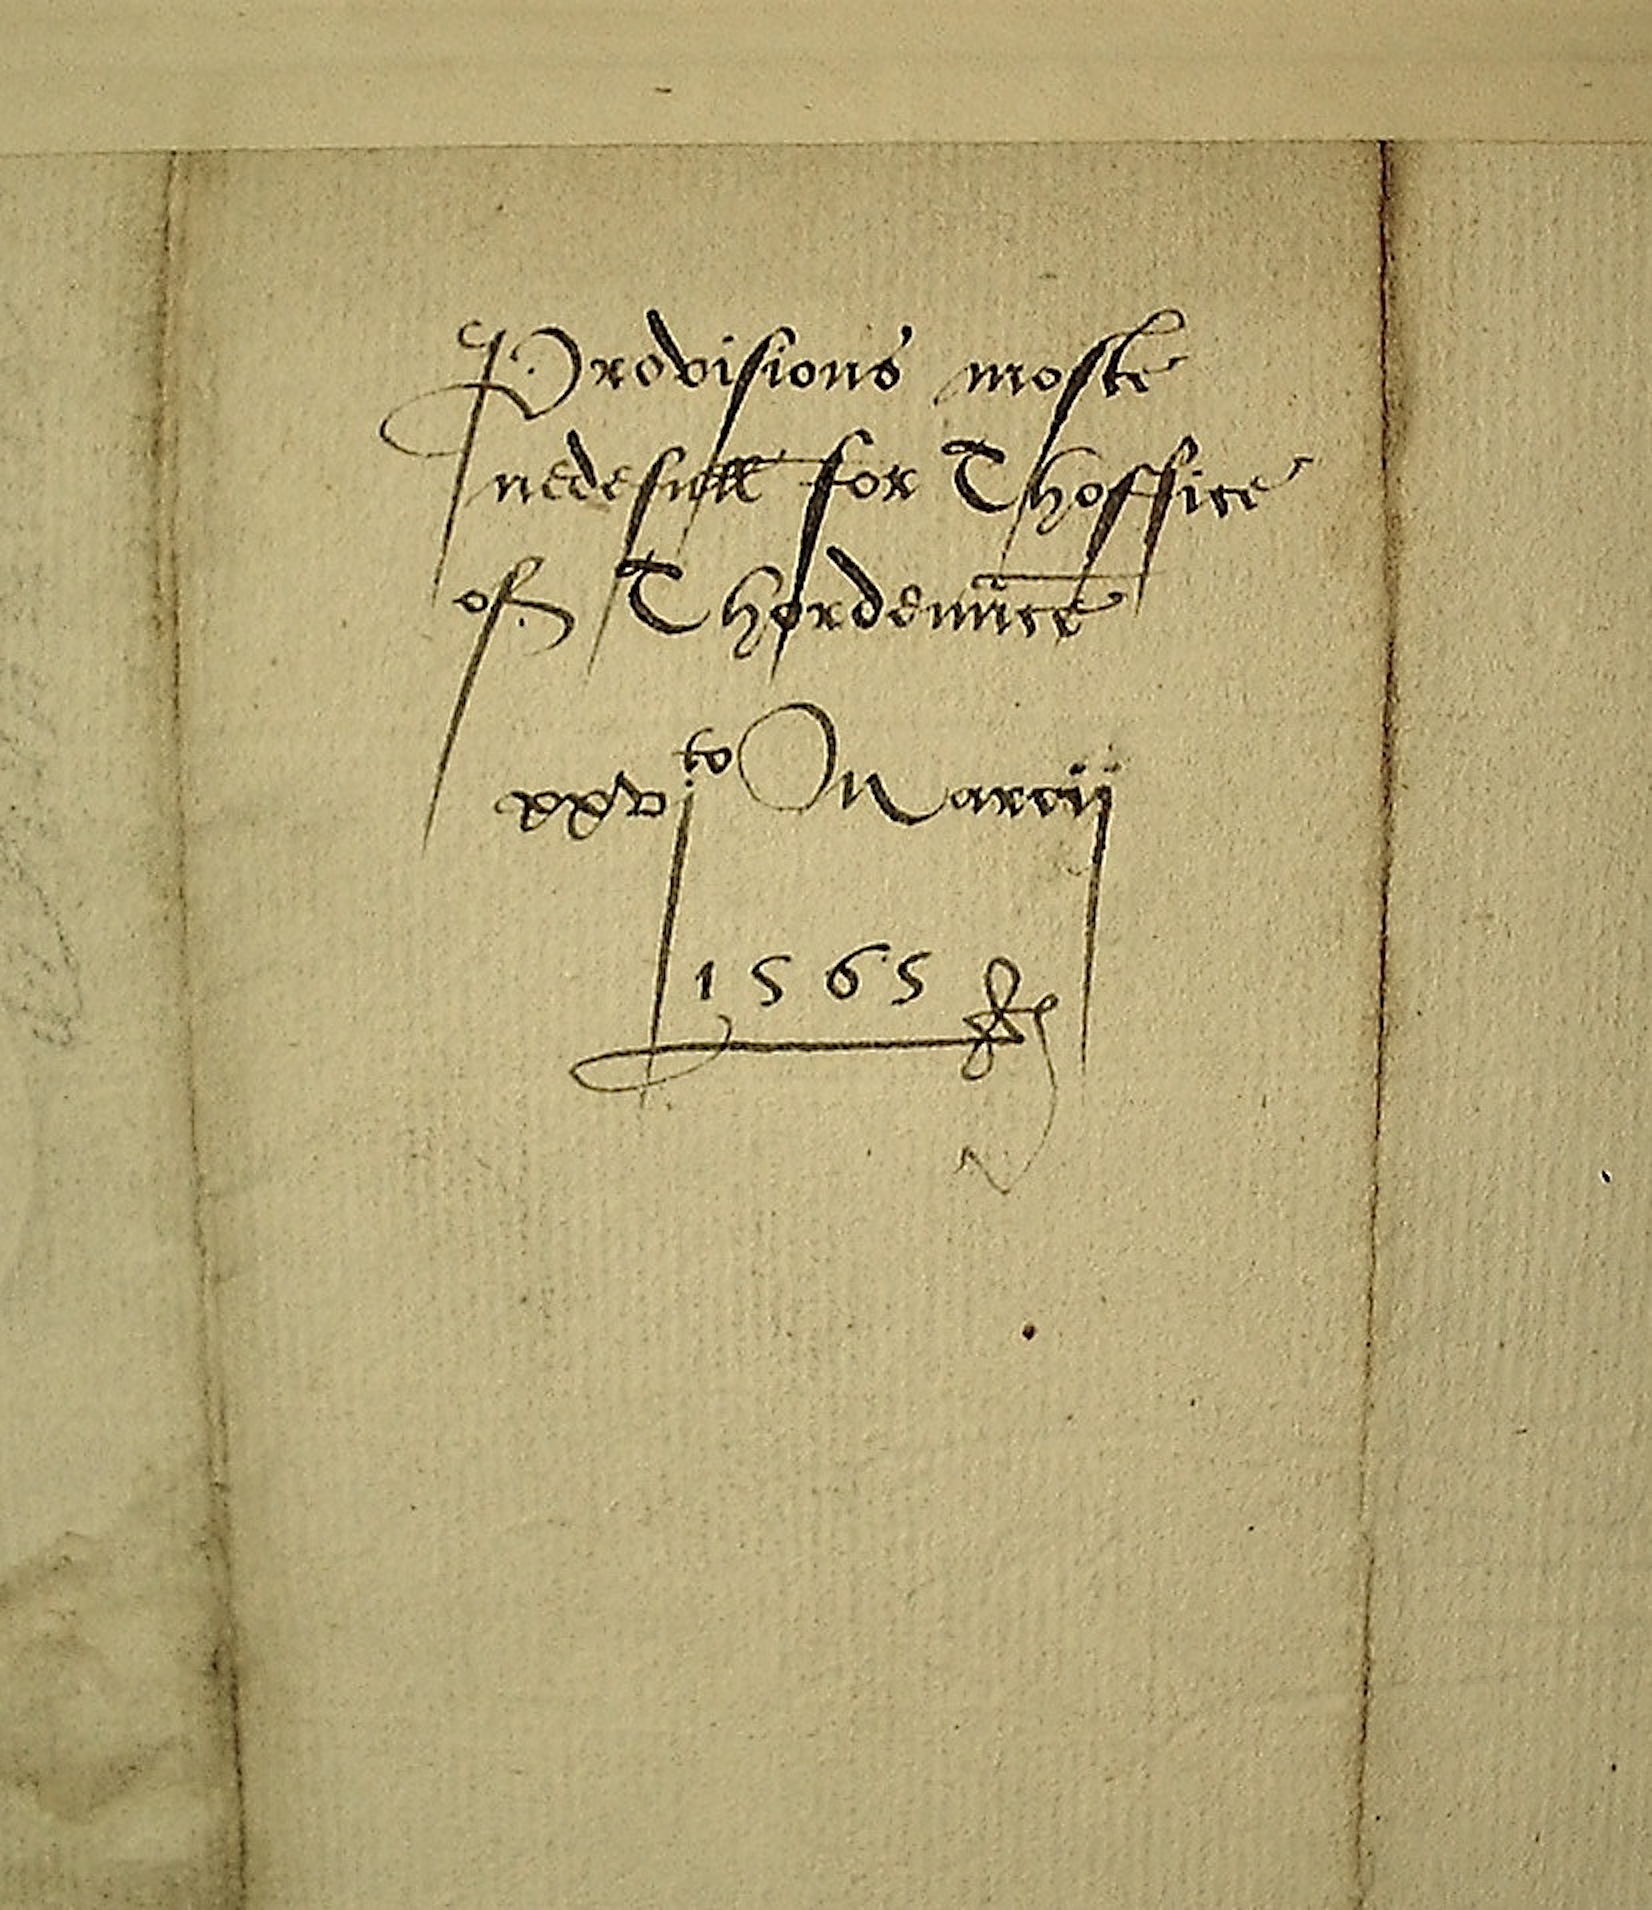 Provisions moste
nedefull for Thoffice
of Thordenn̄ce
xxvjto Marcij
1565